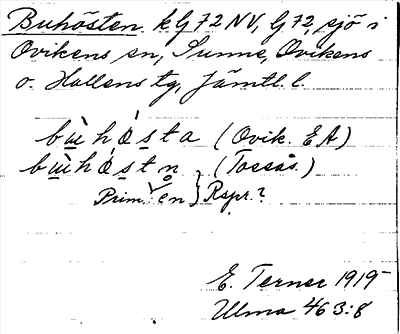 Buhösten kG 72 NV, G 72, sjö i
Ovikens sn, Sunne, Ovikens
o. Hallens tg, Jämtl. l.
bù̲hǻs̲ta (Ovik. EA)
bù̲hǻs̲tn̥ (Tossås.)
Prim. en } Rspr.?
E. Terner 1915
Ulma 463:8